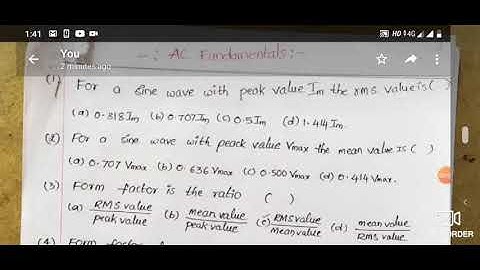 1:41 HD 4G
You
2 minutes ago
-: AC Fundamentals:-
(1) For a sine wave with peak value Im the rms value is ( )
(a) 0.318Im (b) 0.707Im (c) 0.5Im (d) 1.414Im.
(2) For a sine wave with peack value Vmax the mean value is ( )
(a) 0.707 Vmax (b) 0.636 Vmax (c) 0.500 Vmax (d) 0.414 Vmax.
(3) Form factor is the ratio ( )
(a) RMS value / peak value (b) mean value / peak value (c) RMS value / Mean value (d) mean value / RMS value
(4) Form factor
ORDER